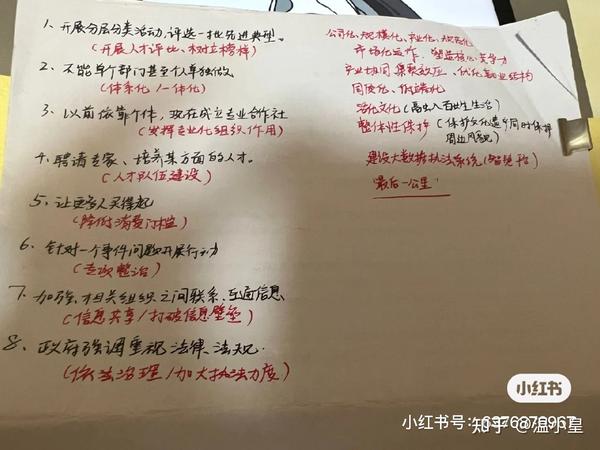 1、开展分层分类活动，评选一批先进典型。
（开展人才评比、树立榜样）
2、不能单个部门甚至个人单独做
（体系化/一体化）
3、以前依靠个体，现在成立专业合作社
（发挥专业化组织作用）
4、聘请专家、培养某方面的人才。
（人才队伍建设）
5、让更多人买得起
（降低消费门槛）
6、针对一个事件问题开展行动
（专项整治）
7、加强相关组织之间联系、互通信息
（信息共享/打破信息壁垒）
8、政府强调重视法律、法规.
（依法治理/加大执法力度）
公司化、规模化、产业化、规范化
市场化运作、塑造核心竞争力
产业协同 集聚效应、优化产业结构
同质化、低端化
活化文化（高出入百姓生活）
整体性保护（保护文化遗产同时保护
周边风貌）
建设大数据执法系统（智慧平台）
"最后一公里"
小红书
小红书号：6376876967
知乎 @温小皇